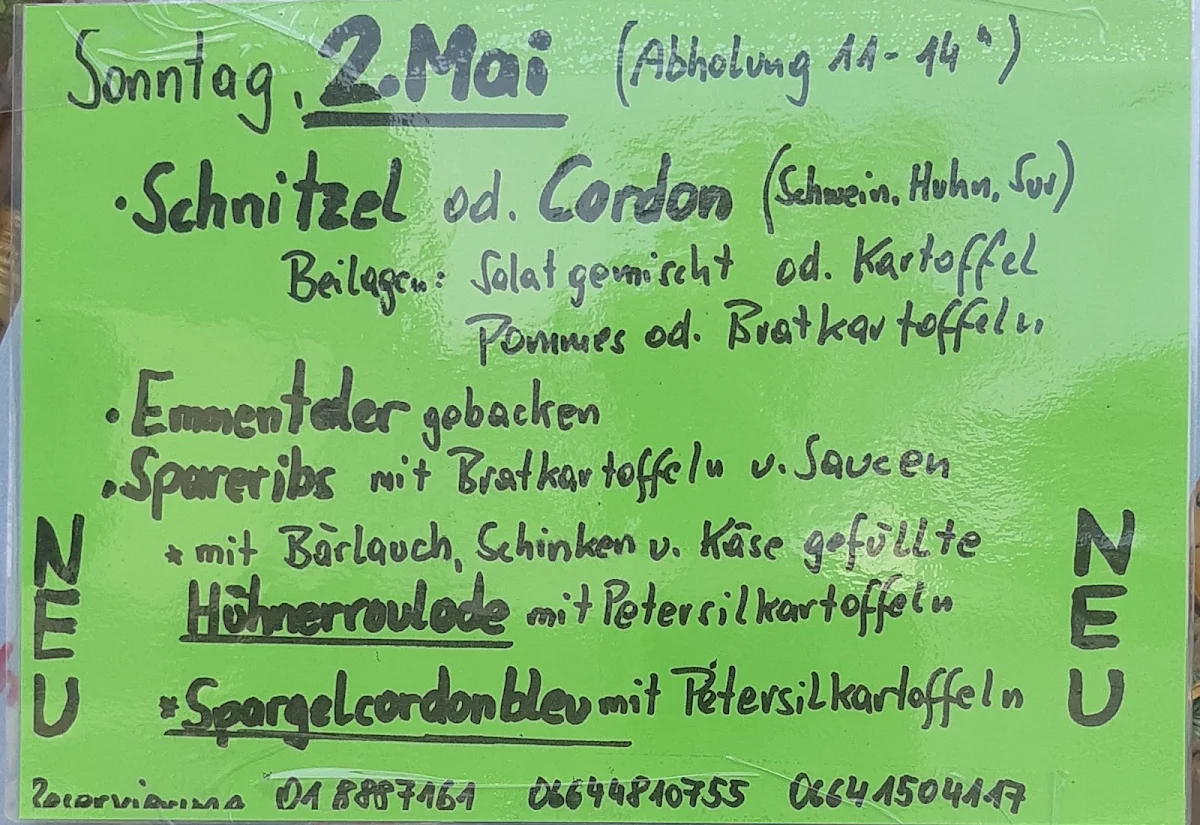 Sonntag, 2. Mai (Abholung 11-14ʰ)
· Schnitzel od. Cordon (Schwein, Huhn, Sur)
Beilagen: Salat gemischt od. Kartoffel
Pommes od. Bratkartoffeln
· Emmentaler gebacken
· Spareribs mit Bratkartoffeln u. Saucen
* mit Bärlauch, Schinken u. Käse gefüllte
Hühnerroulade mit Petersilkartoffeln
* Spargelcordonbleu mit Petersilkartoffeln
NEU
NEU
Reservierung 01 8887161 06644810755 06641504117